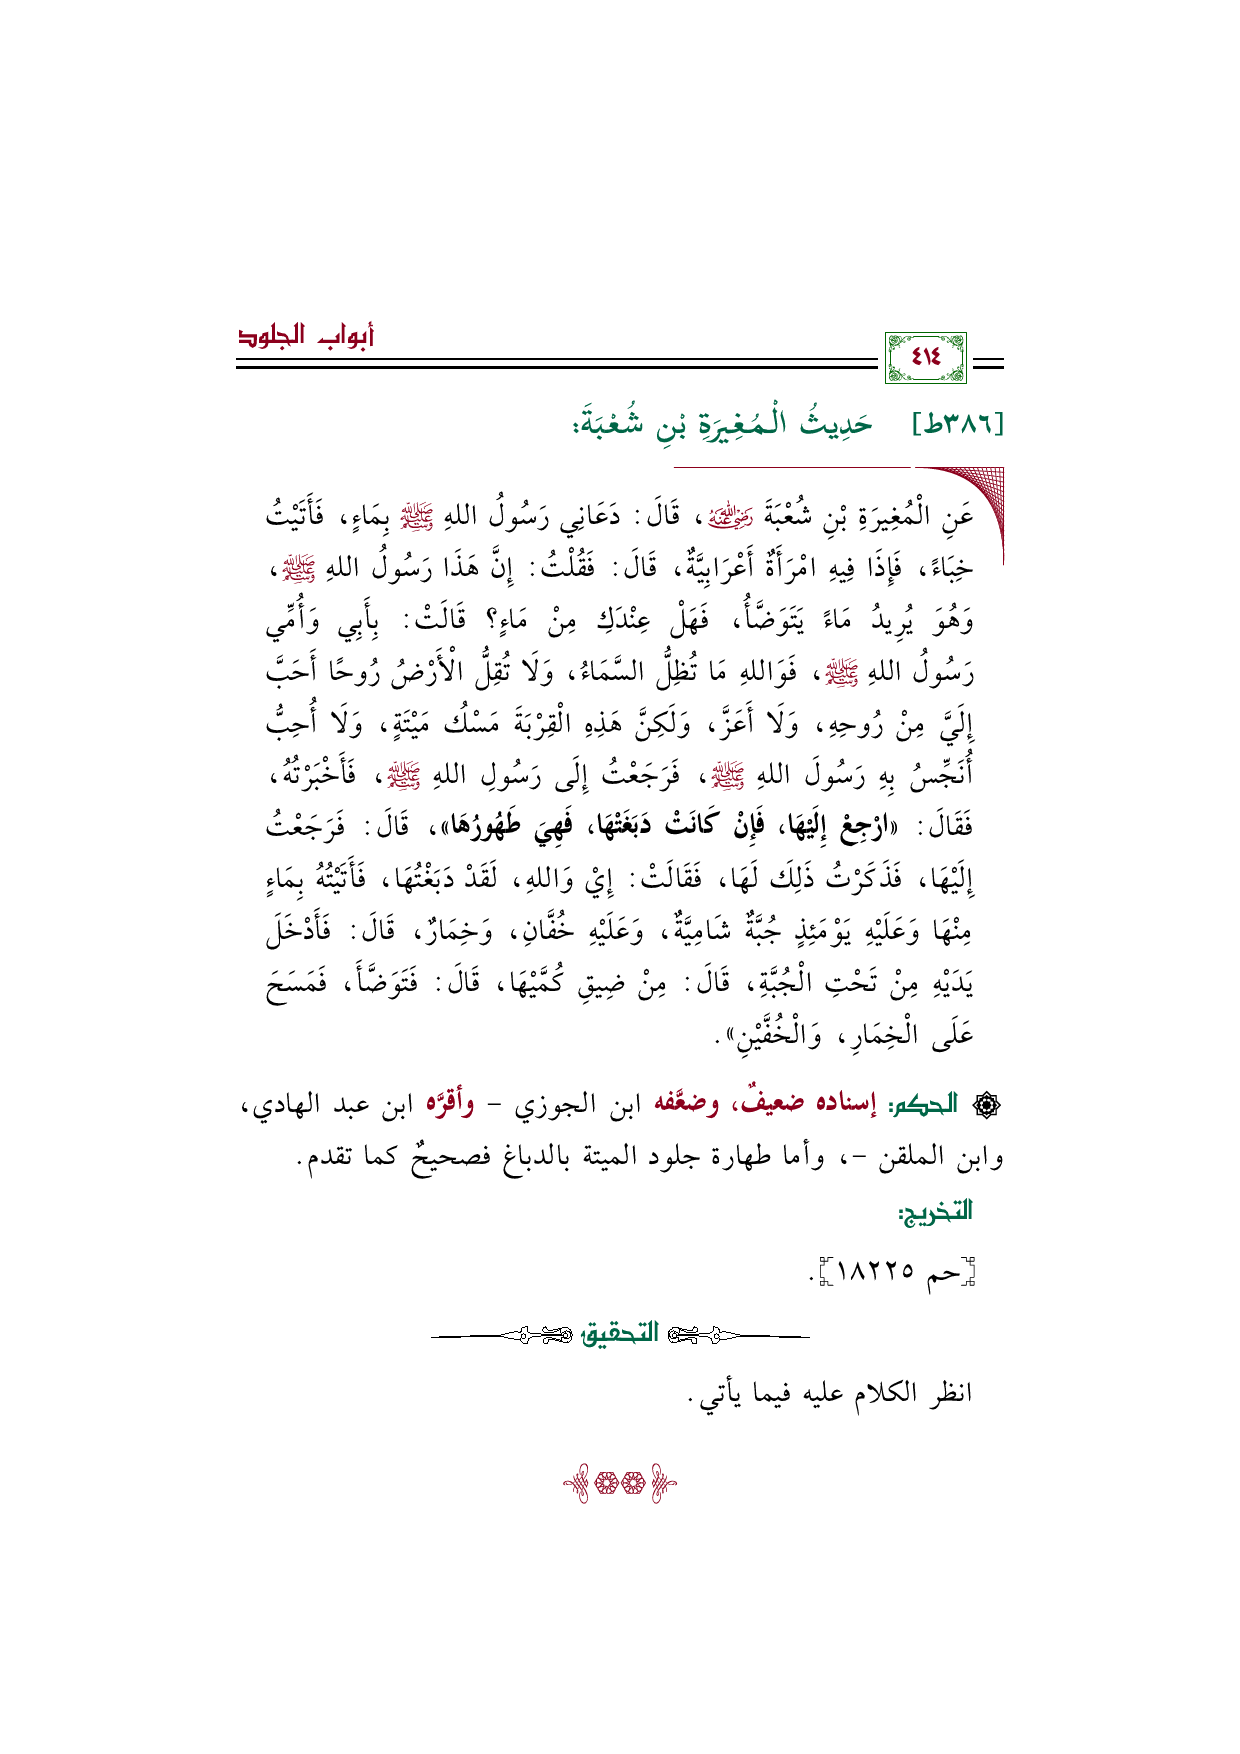 أبواب الجلود
٤١٤
[٣٨٦ط] حَدِيثُ الْمُغِيرَةِ بْنِ شُعْبَةَ:
عَنِ الْمُغِيرَةِ بْنِ شُعْبَةَ رضي الله عنه، قَالَ: دَعَانِي رَسُولُ اللهِ ﷺ بِمَاءٍ، فَأَتَيْتُ
خِبَاءً، فَإِذَا فِيهِ امْرَأَةٌ أَعْرَابِيَّةٌ، قَالَ: فَقُلْتُ: إِنَّ هَذَا رَسُولُ اللهِ ﷺ،
وَهُوَ يُرِيدُ مَاءً يَتَوَضَّأُ، فَهَلْ عِنْدَكِ مِنْ مَاءٍ؟ قَالَتْ: بِأَبِي وَأُمِّي
رَسُولُ اللهِ ﷺ، فَوَاللهِ مَا تُظِلُّ السَّمَاءُ، وَلَا تُقِلُّ الْأَرْضُ رُوحًا أَحَبَّ
إِلَيَّ مِنْ رُوحِهِ، وَلَا أَعَزَّ، وَلَكِنَّ هَذِهِ الْقِرْبَةَ مَسْكُ مَيْتَةٍ، وَلَا أُحِبُّ
أُنَجِّسُ بِهِ رَسُولَ اللهِ ﷺ، فَرَجَعْتُ إِلَى رَسُولِ اللهِ ﷺ، فَأَخْبَرْتُهُ،
فَقَالَ: «ارْجِعْ إِلَيْهَا، فَإِنْ كَانَتْ دَبَغَتْهَا، فَهِيَ طَهُورُهَا»، قَالَ: فَرَجَعْتُ
إِلَيْهَا، فَذَكَرْتُ ذَلِكَ لَهَا، فَقَالَتْ: إِيْ وَاللهِ، لَقَدْ دَبَغْتُهَا، فَأَتَيْتُهُ بِمَاءٍ
مِنْهَا وَعَلَيْهِ يَوْمَئِذٍ جُبَّةٌ شَامِيَّةٌ، وَعَلَيْهِ خُفَّانِ، وَخِمَارٌ، قَالَ: فَأَدْخَلَ
يَدَيْهِ مِنْ تَحْتِ الْجُبَّةِ، قَالَ: مِنْ ضِيقِ كُمَّيْهَا، قَالَ: فَتَوَضَّأَ، فَمَسَحَ
عَلَى الْخِمَارِ، وَالْخُفَّيْنِ».
الحكم: إسناده ضعيفٌ، وضعَّفه ابن الجوزي - وأقرَّه ابن عبد الهادي،
وابن الملقن -، وأما طهارة جلود الميتة بالدباغ فصحيحٌ كما تقدم.
التخريج:
[حم ١٨٢٢٥].
التحقيق
انظر الكلام عليه فيما يأتي.